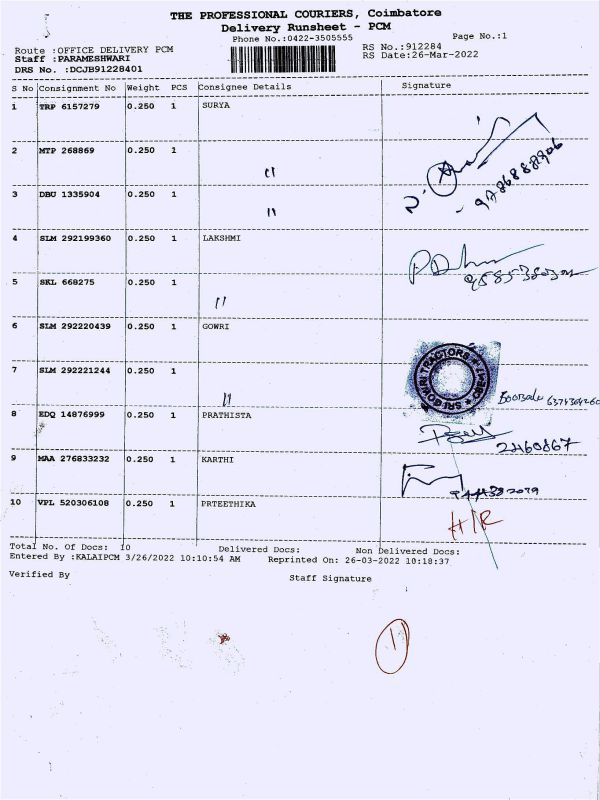 THE PROFESSIONAL COURIERS, Coimbatore
Delivery Runsheet - PCM
Phone No.:0422-3505555
Page No.:1
Route :OFFICE DELIVERY PCM
RS No.:912284
Staff :PARAMESHWARI
RS Date:26-Mar-2022
DRS No. :DCJB91228401
S No Consignment No Weight PCS Consignee Details Signature
1 TRP 6157279 0.250 1 SURYA
2 MTP 268869 0.250 1 "
3 DBU 1335904 0.250 1 "
4 SLM 292199360 0.250 1 LAKSHMI
5 SKL 668275 0.250 1 "
6 SLM 292220439 0.250 1 GOWRI
SRI GOWRI TRACTORS
7 SLM 292221244 0.250 1 "
8 EDQ 14876999 0.250 1 PRATHISTA
2460867
9 MAA 276833232 0.250 1 KARTHI
10 VPL 520306108 0.250 1 PRTEETHIKA
H/R
Total No. Of Docs: 10 Delivered Docs: Non Delivered Docs:
Entered By :KALAIPCM 3/26/2022 10:10:54 AM Reprinted On: 26-03-2022 10:18:37
Verified By Staff Signature
1